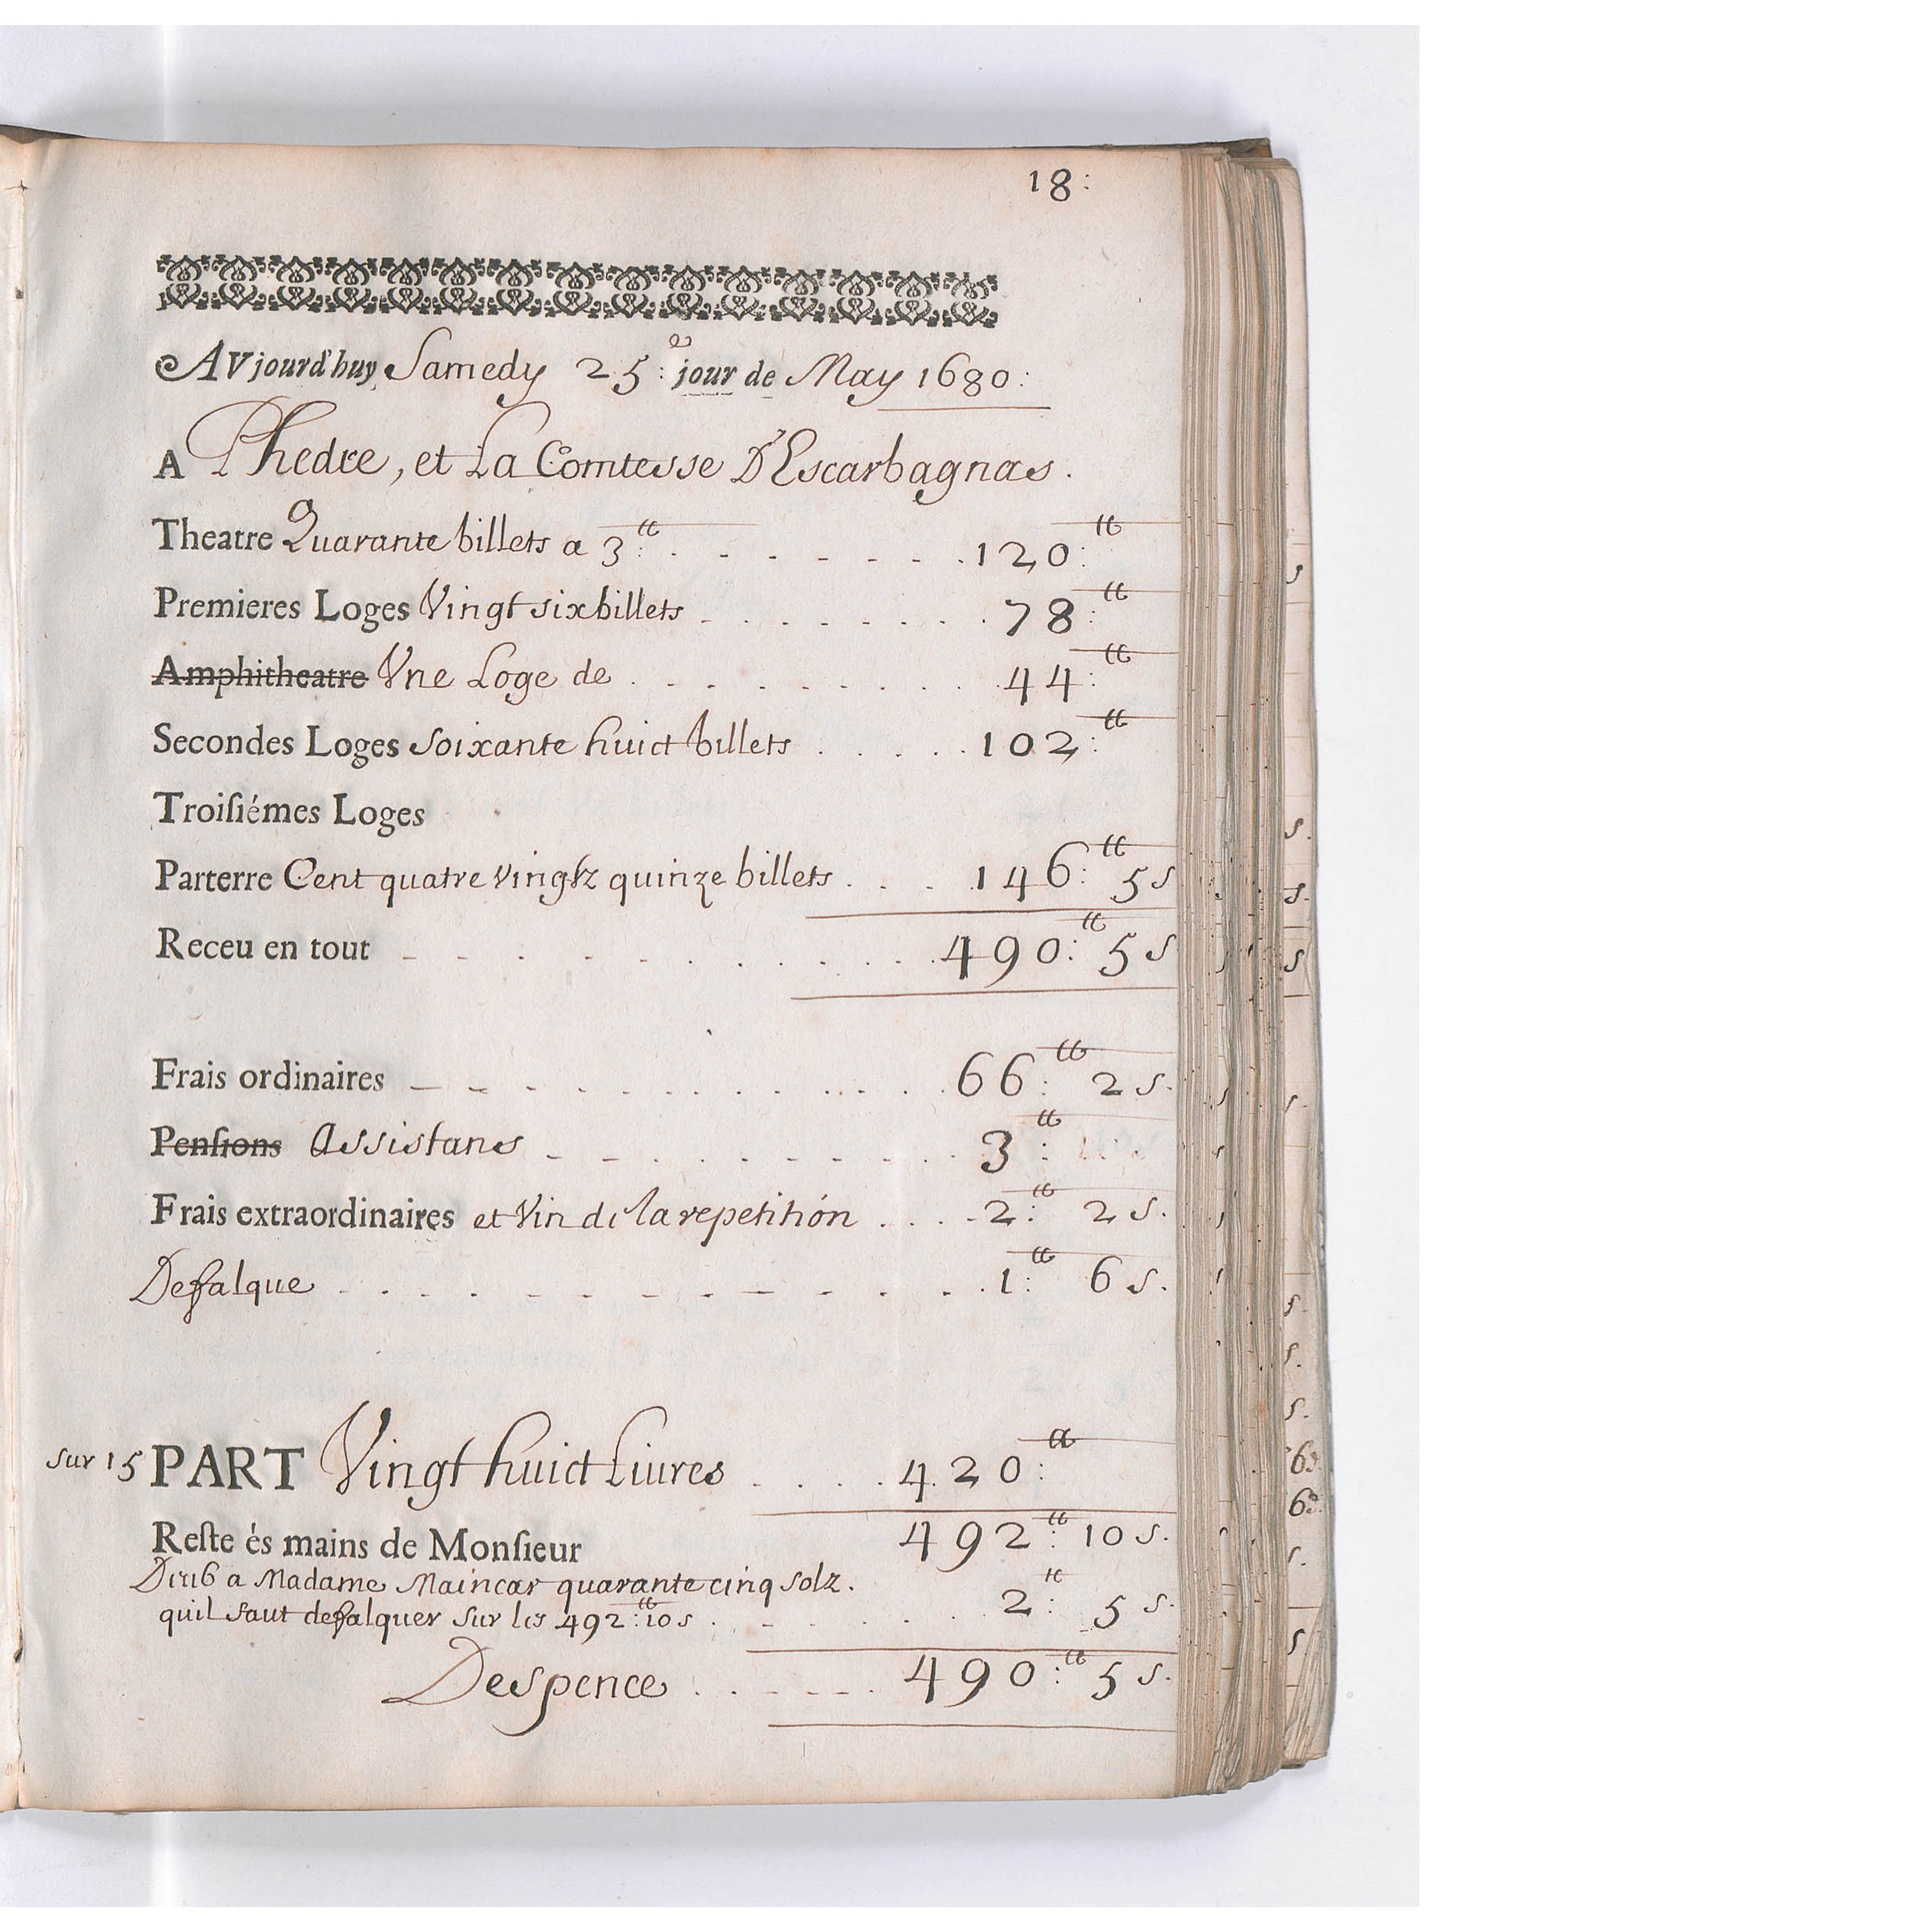 18:
AVjourd'huy Samedy 25:e jour de May 1680:
A Phedre, et La Comtesse D'Escarbagnas.
Theatre Quarante billets a 3:tt . . . . . . . 120:tt
Premieres Loges Vingt six billets . . . . . . . 78:tt
Amphitheatre Vne Loge de . . . . . . . . 44:tt
Secondes Loges soixante huict billets . . . . . 102:tt
Troisiémes Loges
Parterre Cent quatre vingtz quinze billets . . . 146:tt 5 s
Receu en tout . . . . . . . . . . . 490:tt 5 s
Frais ordinaires . . . . . . . . . . . 66:tt 2 s.
Pensions Assistans . . . . . . . . . . 3:tt
Frais extraordinaires et Vin de la repetition . . . . 2:tt 2 s.
Defalque . . . . . . . . . . . . 1:tt 6 s.
sur 15 PART Vingt huict Liures . . . . 420:tt
Reste és mains de Monsieur 492:tt 10 s.
a Madame Maincar quarante cinq solz.
quil faut defalquer sur les 492:tt 10 s . . . . . . 2:tt 5 s.
Despence . . . . . . 490:tt 5 s.